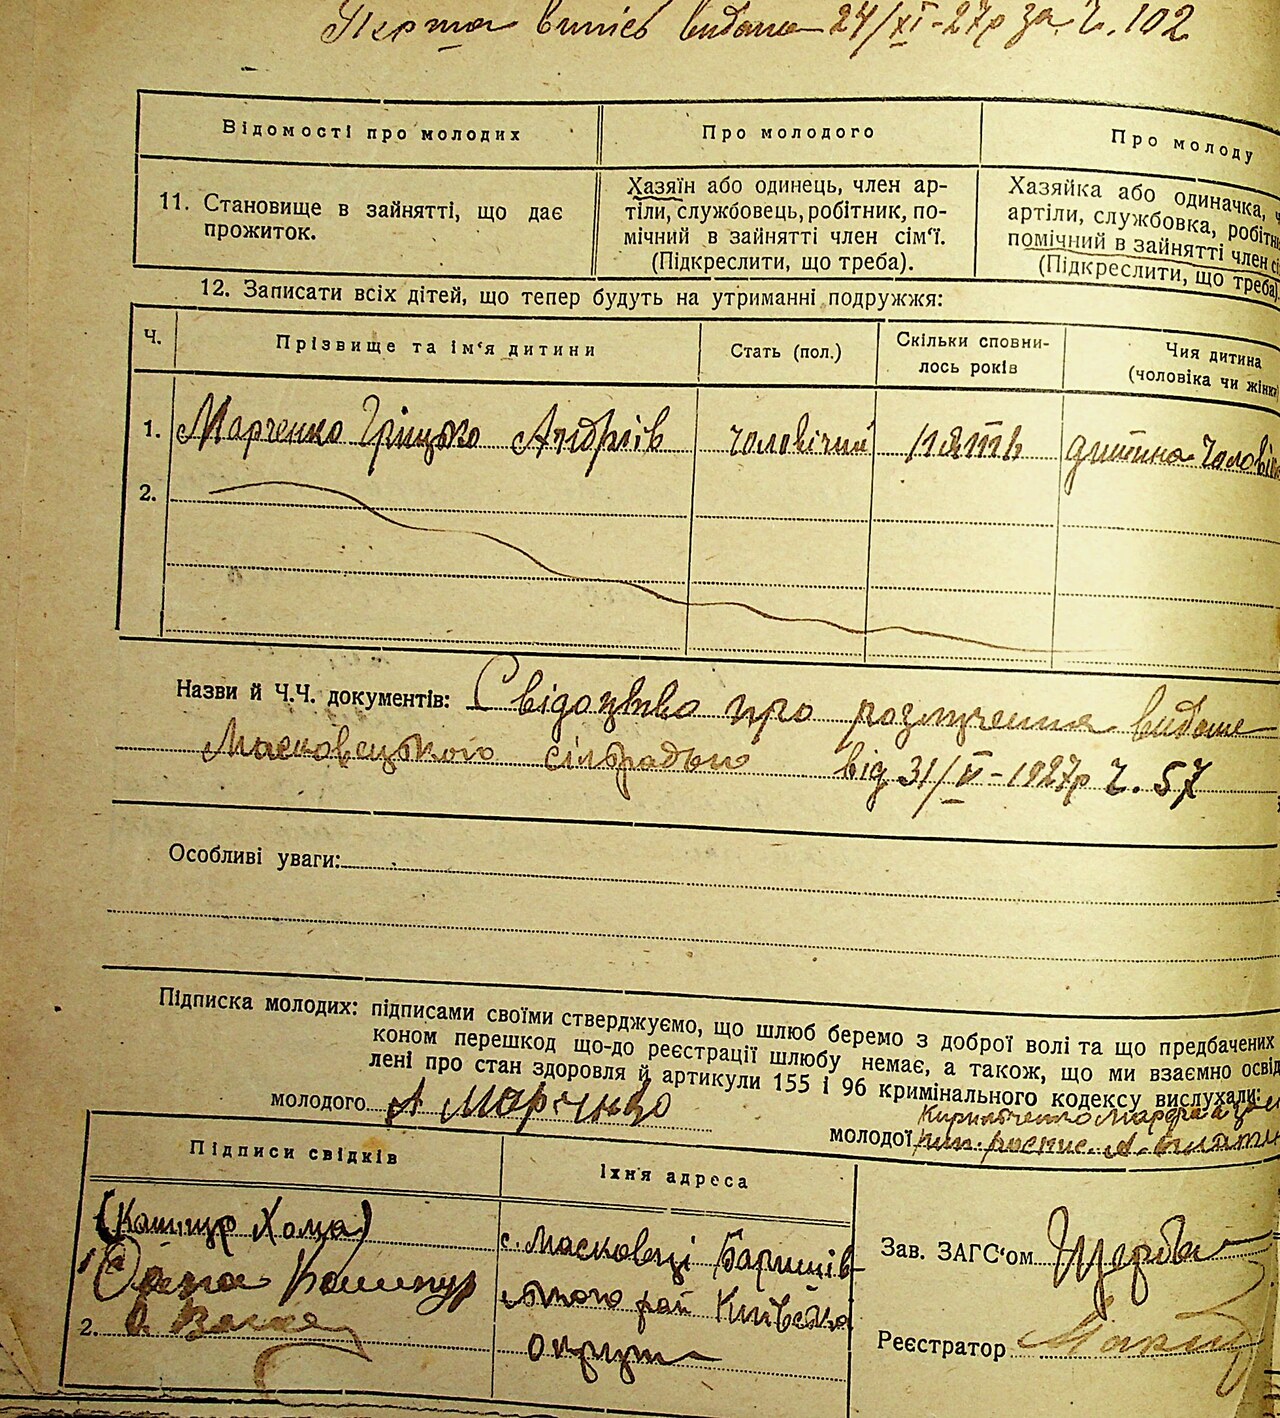 Перша випись видана 24/XI-27р за Ч. 102
Відомості про молодих
Про молодого
Про молоду
11. Становище в зайнятті, що дає
прожиток.
Хазяїн або одинець, член ар-
тіли, службовець, робітник, по-
мічний в зайнятті член сім‘ї.
(Підкреслити, що треба).
Хазяйка або одиначка,
артіли, службовка, робітн
помічний в зайнятті член с
(Підкреслити, що треба)
12. Записати всіх дітей, що тепер будуть на утриманні подружжя:
Ч.
Прізвище та ім‘я дитини
Стать (пол.)
Скільки сповни-
лось років
Чия дитина
(чоловіка чи жінки
1. Марченко Грицько Андріїв чоловічий пять дитина чолові
2.
Назви й Ч.Ч. документів: Свідоцтво про розлучення видане
Масковецькою сільрадою від 31/V-1927р Ч. 57
Особливі уваги:
Підписка молодих: підписами своїми стверджуємо, що шлюб беремо з доброї волі та що предбачених
коном перешкод що-до реєстрації шлюбу немає, а також, що ми взаємно освід
лені про стан здоровля й артикули 155 і 96 кримінального кодексу вислухали:
молодого А Марченко
молодої
Підписи свідків
Їхня адреса
(Кашпур Хома)
1.
с. Масковці Баришів-
ського рай Київська
округа
2.
Зав. ЗАГС‘ом Щерба
Реєстратор